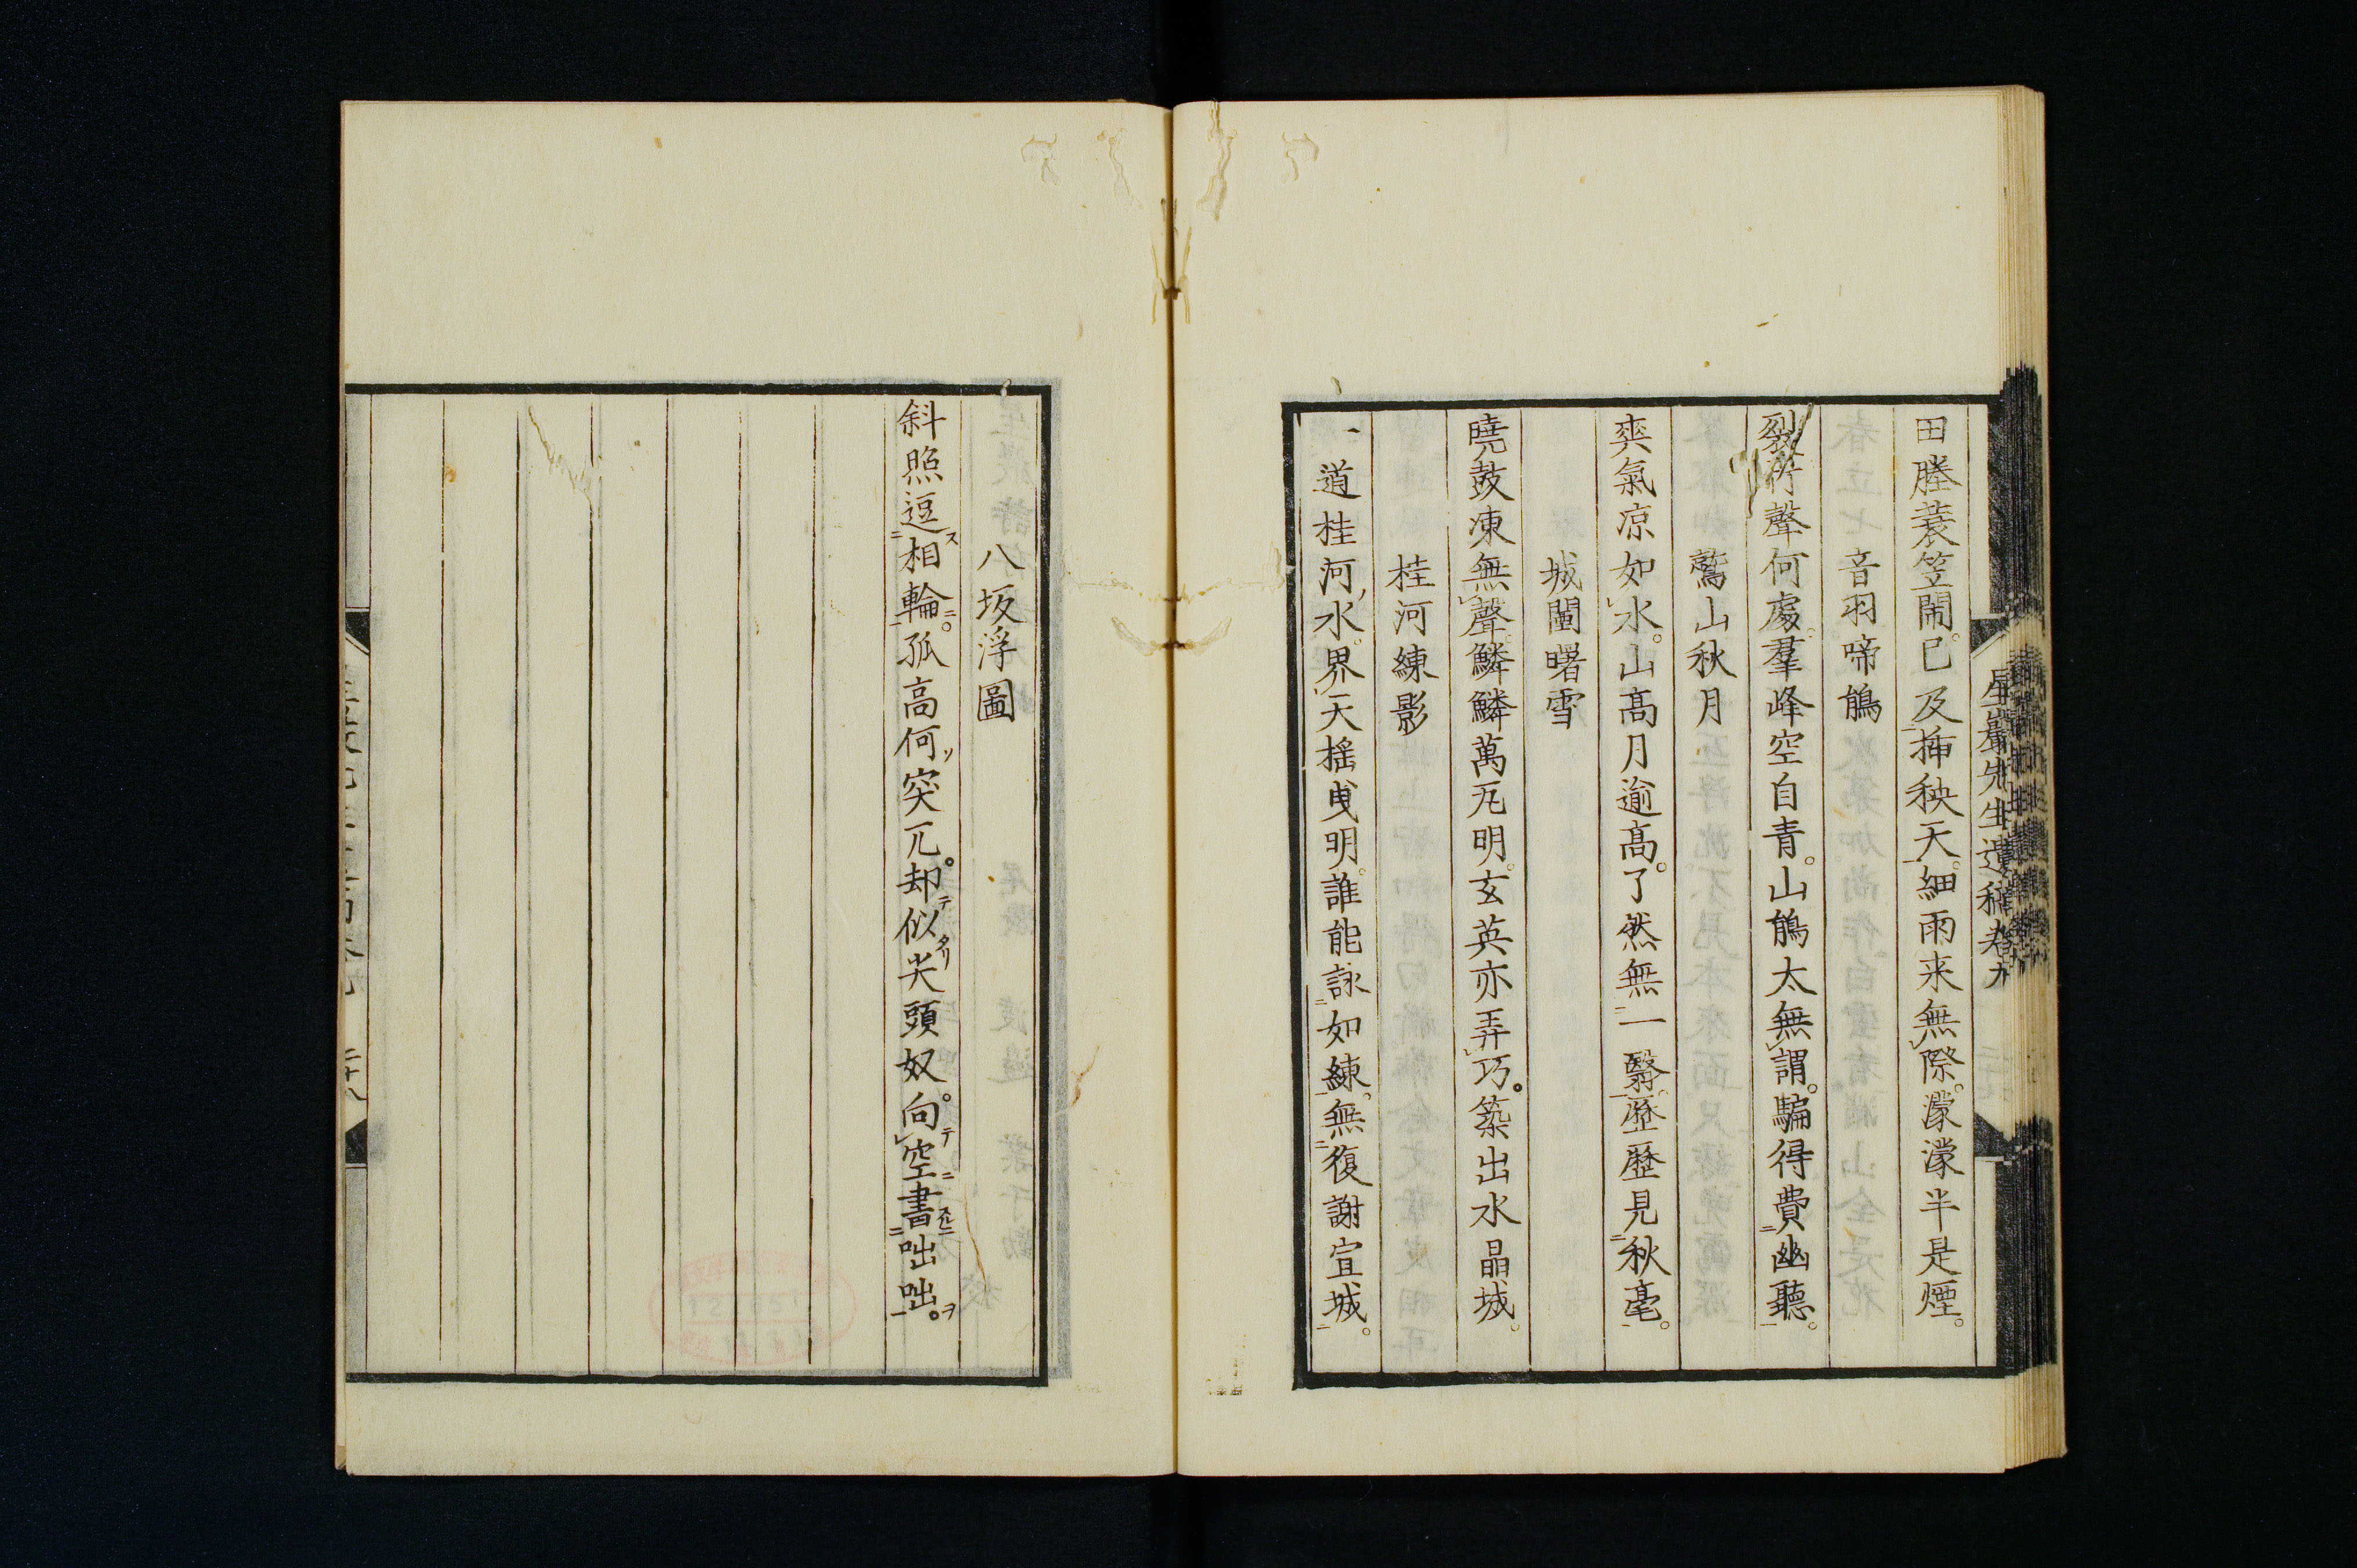 星巖先生遺稿卷九
田塍蓑笠鬧。已及揷秧天。細雨来無際。濛濛半是煙。
音羽啼鵑
裂竹聲何處。羣峰空自青。山鵑太無謂。騙得費幽聽。
鷲山秋月
爽氣凉如水。山高月逾高。了然無一翳。歷歷見秋毫。
城闉曙雪
曉鼓凍無聲。鱗鱗萬瓦明。玄英亦弄巧。築出水晶城。
桂河練影
一道桂河水。界天搖曳明。誰能詠如練。無復謝宣城。
八坂浮圖
斜照逗相輪。孤高何突兀。却似尖頭奴。向空書咄咄。
二十八